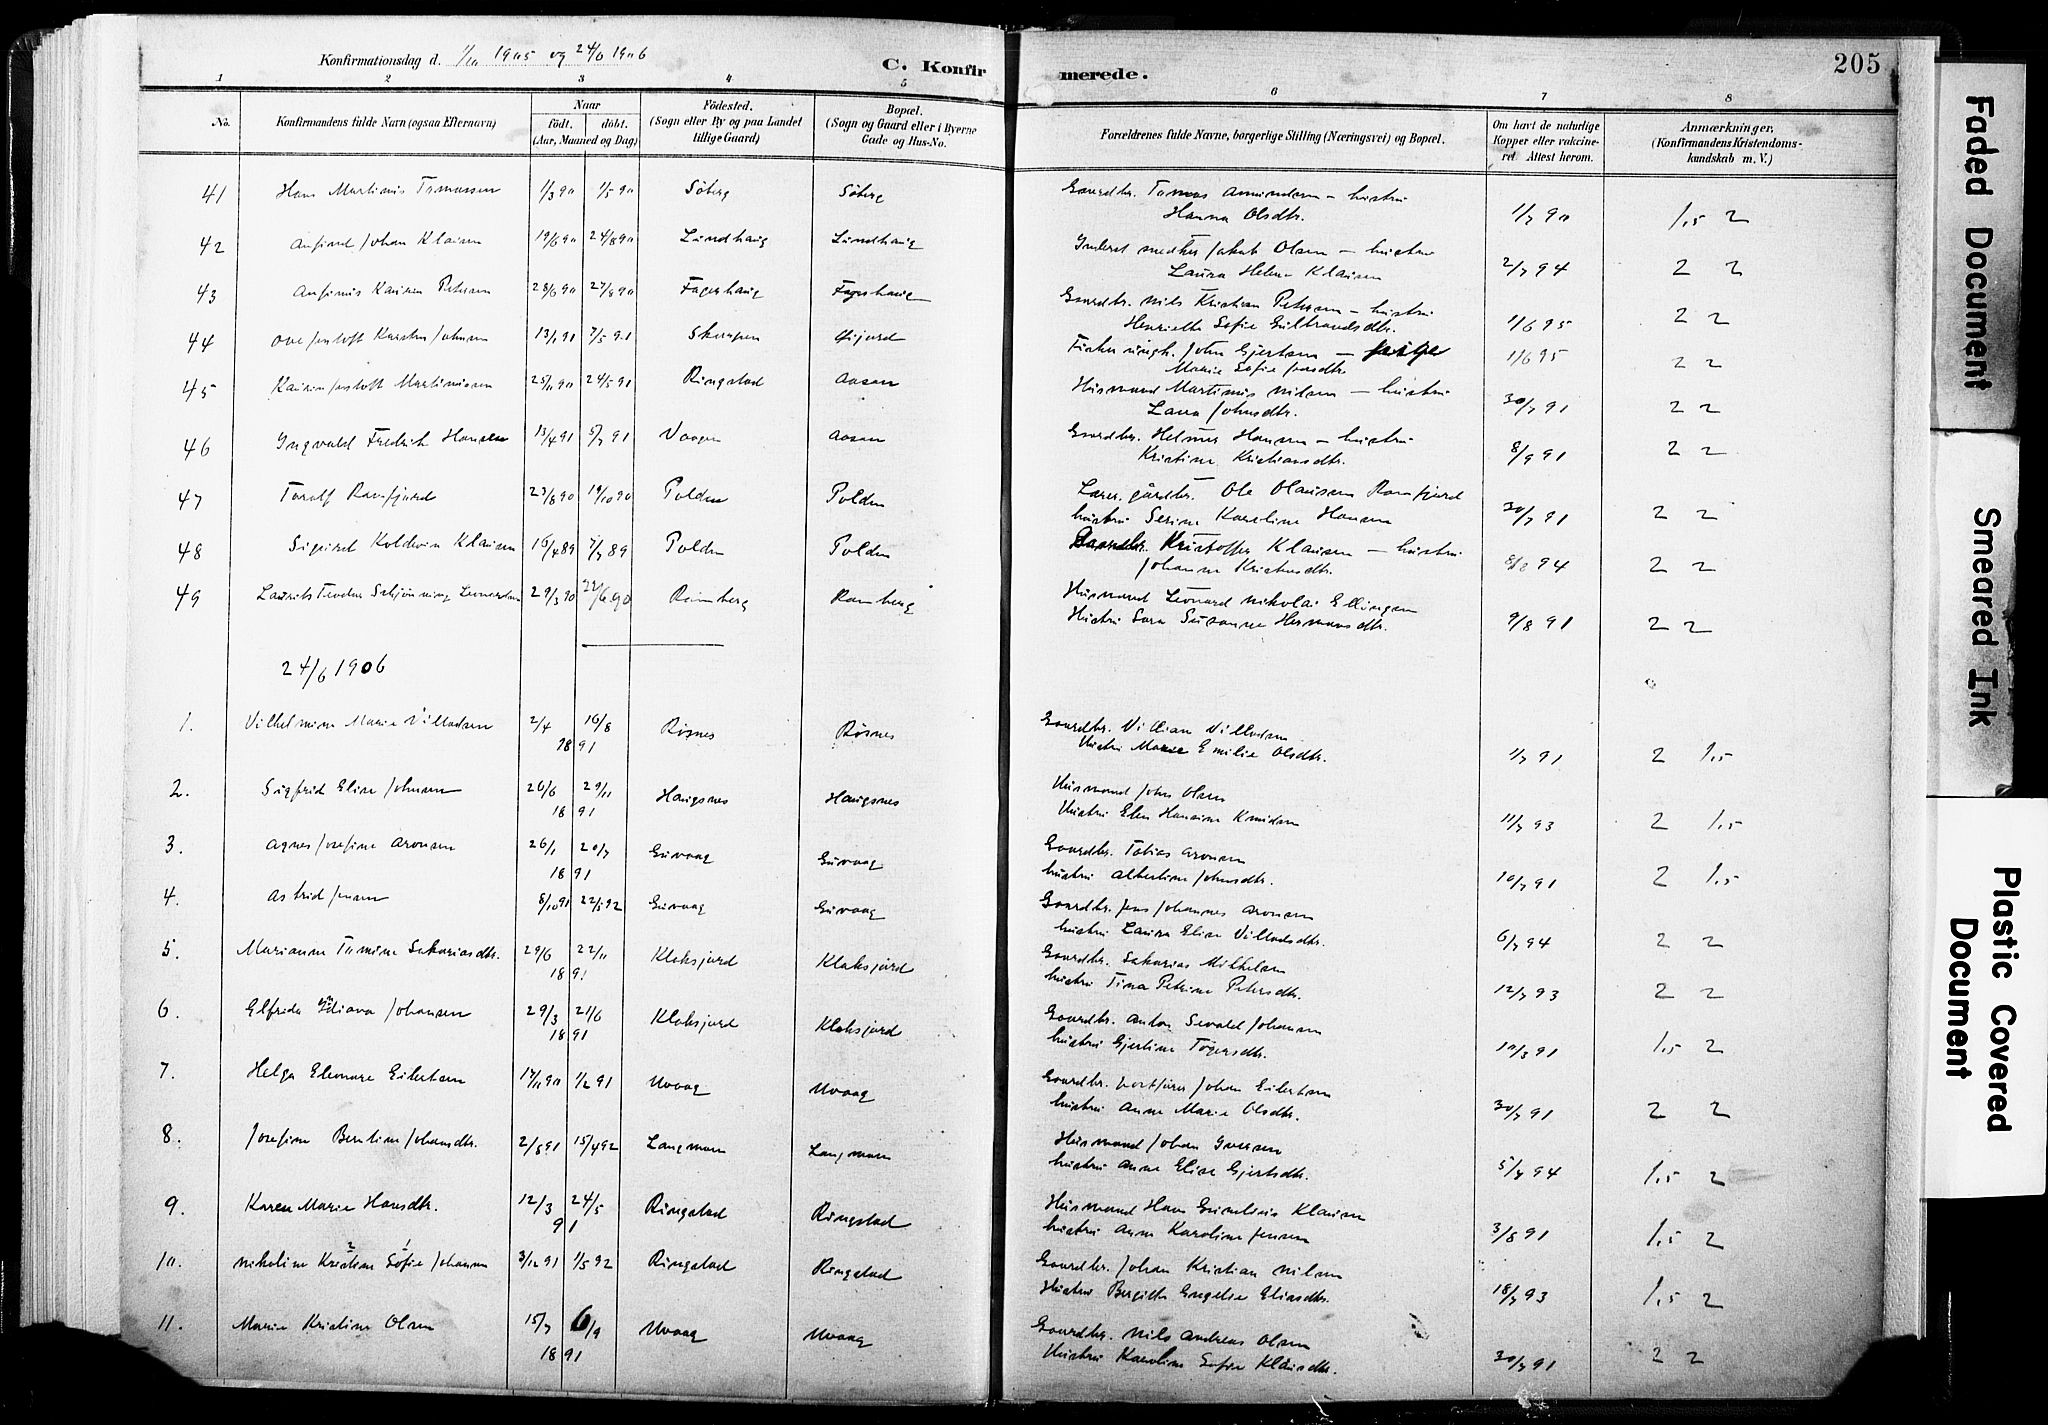 Konfirmationsdag d. 1/10 1905 og 24/6 1906
C. Konfirmerede.
205
1 2 3 4 5 6 7 8
No.
Konfirmandens fulde Navn (ogsaa Efternavn)
Naar
födt. döbt.
(Aar, Maaned og Dag)
Födested.
(Sogn eller By og paa Landet
tillige Gaard)
Bopæl.
(Sogn og Gaard eller i Byerne
Gade og Hus-No.
Forældrenes fulde Navne, borgerlige Stilling (Næringsvei) og Bopæl.
Om havt de naturlige
Kopper eller vakcine-
ret. Attest herom.
Anmærkninger.
(Konfirmandens Kristendoms-
kundskab m. V.)
41 Hans Martinus Tomassen 1/3 90 1/5 90 Söberg Söberg Gaardbr. Tomas Amundsen – hustru
Hanna Olsdtr. 1/7 90 1,5 2
42 Anfind Johan Klausen 19/6 90 24/8 90 Lundhaug Lundhaug Jakob Olsen – hustru
Laura Helene Klausen 2/7 94 2 2
43 Anfinus Kaurin Petersen 28/6 90 27/8 90 Fagerhaug Fagerhaug Gaardbr. Nils Kristian Petersen – hustru
Henriette Sofie Giltbrandsdtr. 1/6 95 2 2
44 Ove Jentoft Karsten Johnsen 13/1 91 7/5 91 Skarpen Gijord Fisker ungk. John Gjertsen – pige
Marie Sofie Jensdtr. 1/6 95 2 2
45 Kaurin Jentoft Martinussen 25/11 90 24/5 91 Ringstad Aasan Husmand Martinus Nilsen – hustru
Lava Johnsdtr. 30/7 91 2 2
46 Ingvald Fredrik Hansen 13/4 91 5/7 91 Vaagen Aasan Gaardbr. Helmer Hansen – hustru
Kristine Kristiansdtr. 8/9 91 2 2
47 Toralf Ramfjord 23/8 90 19/10 90 Polden Polden Lærer, gårdbr. Ole Olausen Ramfjord
hustru Serine Karoline Hansen 30/7 91 2 2
48 Sigurd Koldevin Klausen 16/4 89 7/7 89 Polden Polden Gaardbr. Kristoffer Klausen – hustru
Johanna Kristensdtr. 8/8 94 2 2
49 Laurits Teodor Schjönning Leonardsen 29/3 90 22/6 90 Ramberg Ramberg Husmand Leonard Nikolai Ellingsen
Hustru Sara Susanna Hermansdtr. 9/8 91 2 2
24/6 1906
1. Vilhelmine Marie Villadsen 2/4 16/8 Rösnes Rösnes Gaardbr. Villian Villadsen
1891 Hustru Marie Emilie Olsdtr. 1/7 91 2 1,5
2. Sigfrid Elise Johnsen 26/6 29/11 Haugsnes Haugsnes Husmand John Olsen
1891 Hustru Elen Hansine Knudsen 11/7 93 2 1,5
3. Agnes Josefine Aronsen 26/1 20/7 Guvaag Guvaag Gaardbr. Tobias Aronsen
1891 hustru Albertine Johnsdtr. 10/7 91 2 1,5
4. Astrid Jensen 8/10 91 22/5 92 Guvaag Guvaag Gaardbr. Jens Johannes Aronsen
hustru Laura Elise Villadsdtr. 6/7 94 2 2
5. Marianne Tomine Sakariasdtr. 29/6 22/11 Kloksjord Kloksjord Gaardbr. Sakarias Mikkelsen
1891 hustru Tina Petrine Petersdtr. 12/7 93 2 2
6. Elfrida Indiana Johansen 29/3 21/6 Kloksjord Kloksjord Gaardbr. Anton Sevald Johansen
1891 hustru Gjertine Tögersdtr. 10/3 91 1,5 2
7. Helga Eleonore Eilertsen 17/11 90 1/2 91 Uvaag Uvaag Gaardbr. Johan Eilertsen
hustru Anne Marie Olsdtr. 30/7 91 2 2
8. Josefine Berntine Johansdtr. 2/8 91 15/4 92 Langmoen Langmoen Husmand Johan Iversen
hustru Anne Elise Gjertsdtr. 5/7 94 1,5 2
9. Karen Marie Hansdtr. 12/3 24/5 Ringstad Ringstad Husmand Hans Kornelius Klausen
91 hustru Anne Karoline Jensen 3/8 91 1,5 2
10. Nikoline Kristine Sofie Johansen 3/12 91 1/5 92 Ringstad Ringstad Gaardbr. Johan Kristian Nilsen
Hustru Bergitte Engelse Eliasdtr. 18/7 93 1,5 2
11. Marie Kristine Olsen 15/7 6/9 Uvaag Uvaag Gaardbr. Nils Andreas Olsen
1891 Hustru Karoline Sofie Klausdtr. 30/7 91 2 2
Faded Document
Smeared Ink
Plastic Covered
Document